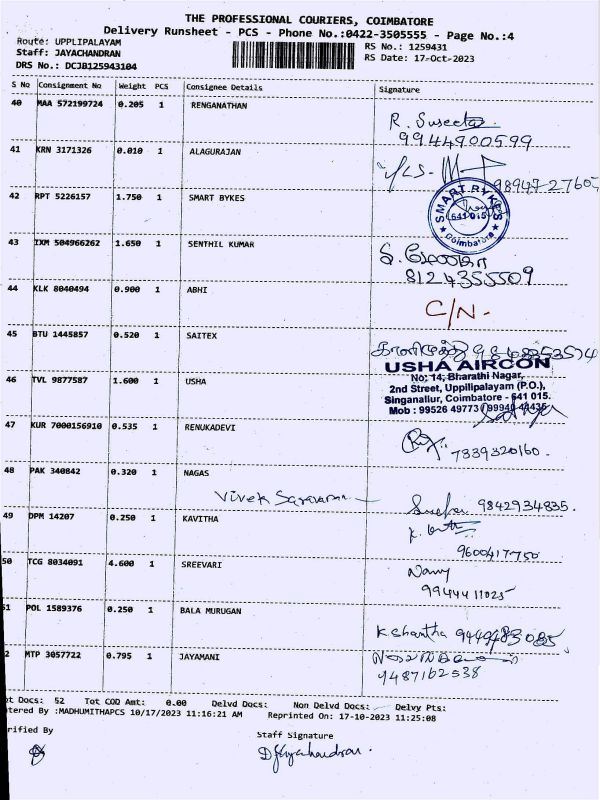 THE PROFESSIONAL COURIERS, COIMBATORE
Delivery Runsheet - PCS - Phone No.:0422-3505555 - Page No.:4
Route: UPPLIPALAYAM
Staff: JAYACHANDRAN
DRS No.: DCJB125943104
RS No.: 1259431
RS Date: 17-Oct-2023
S No Consignment No Weight PCS Consignee Details Signature
40 MAA 572199724 0.205 1 RENGANATHAN
R.
9944900599
41 KRN 3171326 0.010 1 ALAGURAJAN
9894727605
42 RPT 5226157 1.750 1 SMART BYKES
SMART BYKES
641 015
Coimbatore
43 IXM 504966262 1.650 1 SENTHIL KUMAR
8124355509
44 KLK 8040494 0.900 1 ABHI
C/N-
45 BTU 1445857 0.520 1 SAITEX
9848353574
46 TVL 9877587 1.600 1 USHA
USHA AIRCON
No: 14, Bharathi Nagar,
2nd Street, Uppilipalayam (P.O.),
Singanallur, Coimbatore - 641 015.
Mob : 99526 49773 / 99940 44436
47 KUR 7000156910 0.535 1 RENUKADEVI
7339320160.
48 PAK 340842 0.320 1 NAGAS
Vivek
9842934835.
49 DPM 14207 0.250 1 KAVITHA
9600417750
50 TCG 8034091 4.600 1 SREEVARI
9944411025
51 POL 1589376 0.250 1 BALA MURUGAN
K. Shantha
2 MTP 3057722 0.795 1 JAYAMANI
9487162538
ot Docs: 52 Tot COD Amt: 0.00 Delvd Docs: Non Delvd Docs: Delvy Pts:
tered By :MADHUMITHAPCS 10/17/2023 11:16:21 AM Reprinted On: 17-10-2023 11:25:08
rified By
Staff Signature